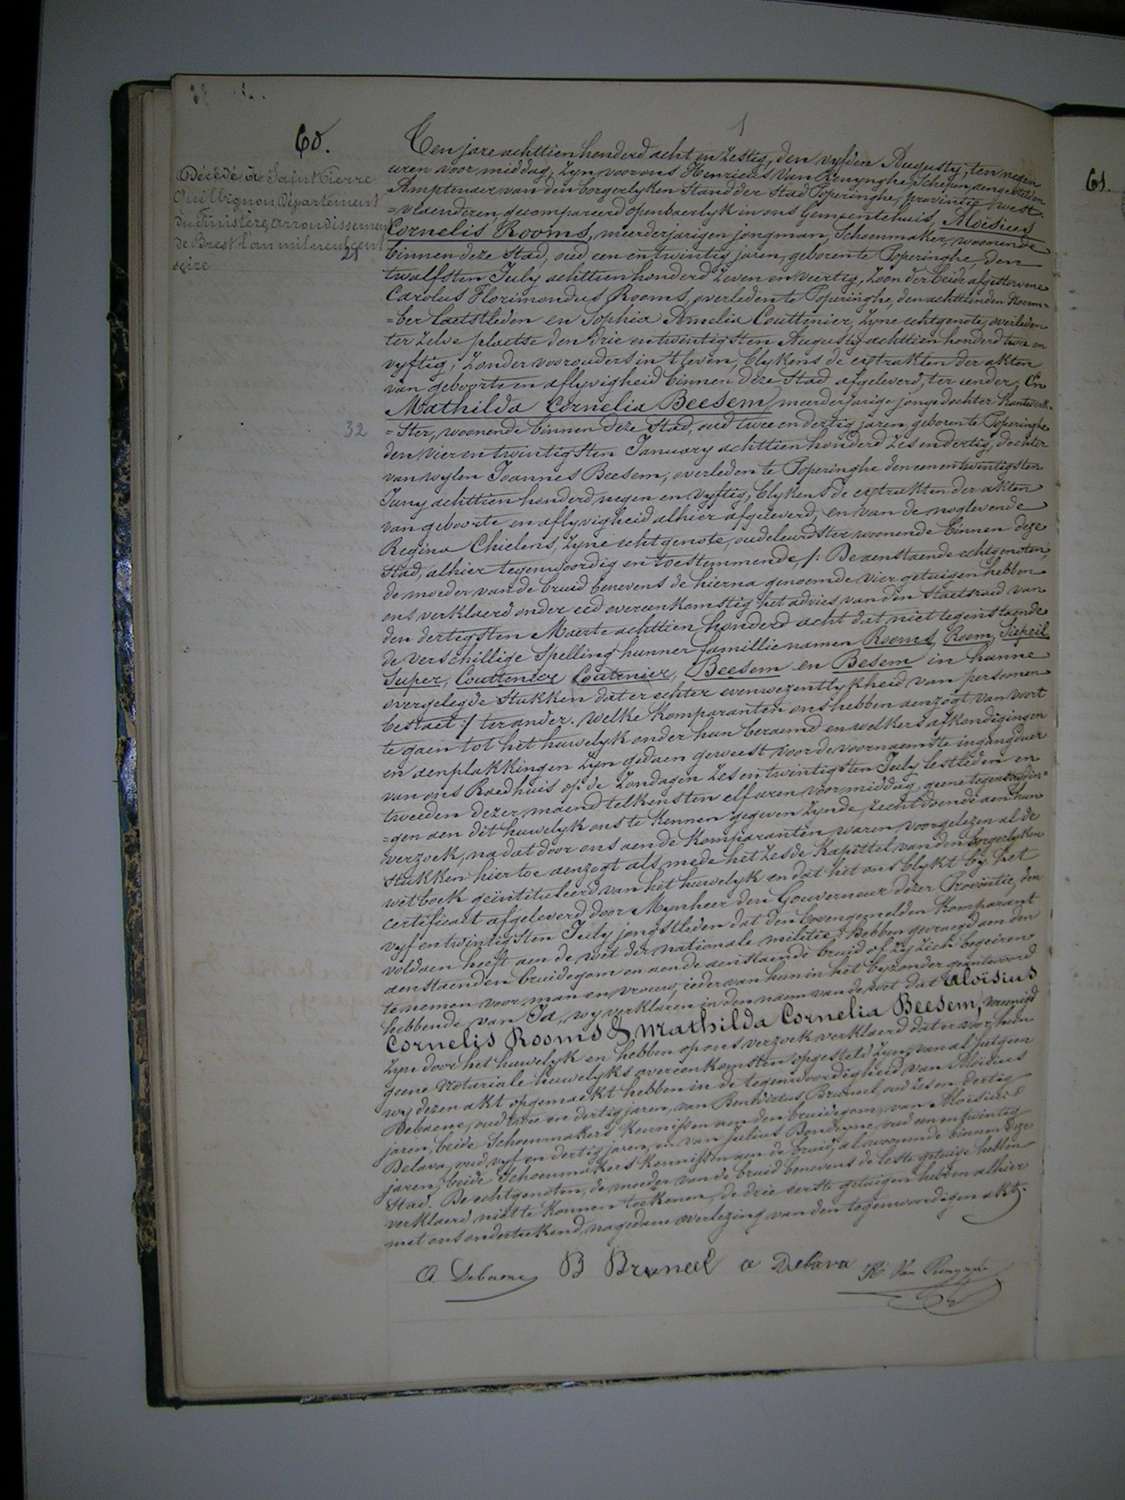 60.
Décédé à Saint Pierre
Quilbignon, Département
du Finistère, arrondissement
de Brest l'an mil neuf cent
seize
21
32
1
Ten jare achttien honderd acht en zestig, den vyfden Augusty, ten negen
uren voor middag, zyn voor ons Henricus Van Renynghe, schepen, aengestelden
Amptenaer van den borgerlyken stand der stad Poperinghe, provintie West-
=vlaenderen, gecompareerd openbaerlyk in ons Gemeentehuis, Aloïsius
Cornelis Rooms, meerderjarigen jongman, Schoenmaker, woonende
binnen deze Stad, oud een en twintig jaren, geboren te Poperinghe, den
twalfsten July achttien honderd zeven en veertig, zoon der beide afgestorvene
Carolus Florimondus Rooms, overleden te Poperinghe, den achttienden Novem=
=ber laetstleden en Sophia Amelia Couttenier, zyne echtgenote, overleden
ter zelve plaetse den drie en twintigsten Augusty achttien honderd twee en
vyftig, zonder voorouders in 't leven, blykens de extrakten der akten
van geboorte en aflyvigheid binnen deze Stad afgeleverd, ter eender, En
Mathilda Cornelia Beesem, meerderjarige jongedochter Kantwerk=
=ster, woonende binnen deze Stad, oud twee en dertig jaren, geboren te Poperinghe
den vier en twintigsten January achttien honderd zes en dertig, dochter
van wylen Joannes Beesem, overleden te Poperinghe den een en twintigsten
Juny achttien honderd negen en vyftig, blykens de extrakten der akten
van geboorte en aflyvigheid alhier afgeleverd, en van de noglevende
Regina Chielens, zyne echtgenote, oudekleerdster woonende binnen deze
Stad, alhier tegenwoordig en toestemmende /: De aenstaende echtgenoten,
de moeder van de bruid benevens de hierna genoemde vier getuigen hebben
ons verklaerd onder eed overeenkomstig het advies van den Staetsraed van
den dertigsten Maerte achttien honderd acht dat niet tegenstaende
de verschillige spelling hunner famillienamen Rooms, Room, Siepeil
Super, Couttenier Coutenier, Beesem en Besem in hunne
overgelegde stukken dat er echter evenwezentlykheid van persoonen
bestaet :/ ter ander. Welke Komparanten ons hebben aenzogt van voort
te gaen tot het huwelyk onder hun beraemd en welkers afkondigingen
en aenplakkingen zyn gedaen geweest voor de voornaemste ingangdeur
van ons Raedhuis op de Zondagen zes en twintigsten July lestleden en
tweeden dezer maend telkens ten elf uren voor middag, geene tegenkantin=
=gen aen dit huwelyk ons te kennen gegeven zynde, recht doende aen hun
verzoek, na dat door ons aen de Komparanten waren voorgelezen al de
stukken hier toe aenzogt als mede het zesde kapittel van den borgerlyken
wetboek geïntituleerd van het huwelyk en dat het ons blykt by het
certificaet afgeleverd door Mynheer den Gouverneur dezer Provintie, den
vyf en twintigsten July jongstleden dat den bovengemelden Komparant
voldaen heeft aen de wet der nationale militie. Hebben gevraegd aen den
aenstaenden bruidegom en aen de aenstaende bruid of zy zich begeiren
te nemen voor man en vrouw, ieder van hun in het byzonder geantwoord
hebbende van Ja, wy verklaren in den naem van de wet dat Aloïsius
Cornelis Rooms & Mathilda Cornelia Beesem, vereenigd
zyn door het huwelyk en hebben op ons verzoek verklaerd dat er voor hun
geene Notariale huwelyks overeenkomsten opgesteld zyn, van al het geen
wy dezen akt opgemaekt hebben in de tegenwoordigheid van Aloïsius
Debaene, oud twee en dertig jaren, van Benedictus Bruneel, oud zes en dertig
jaren, beide Schoenmakers Kennissen aen den bruidegom, van Aloisius
Delava, oud vyf en dertig jaren, en van Julius Bondewe, oud een en twintig
jaren, beide Schoenmakers Kennissen aen de bruid, al woonende binnen deze
Stad. De echtgenoten, de moeder van de bruid benevens de leste getuige hebben
verklaerd niet te konnen teekenen, de drie eerste getuigen hebben alhier
met ons onderteekend, na gedane overlezing van den tegenwoordigen akt.
A Debaene B Bruneel a Delava H Van Renynghe
61.